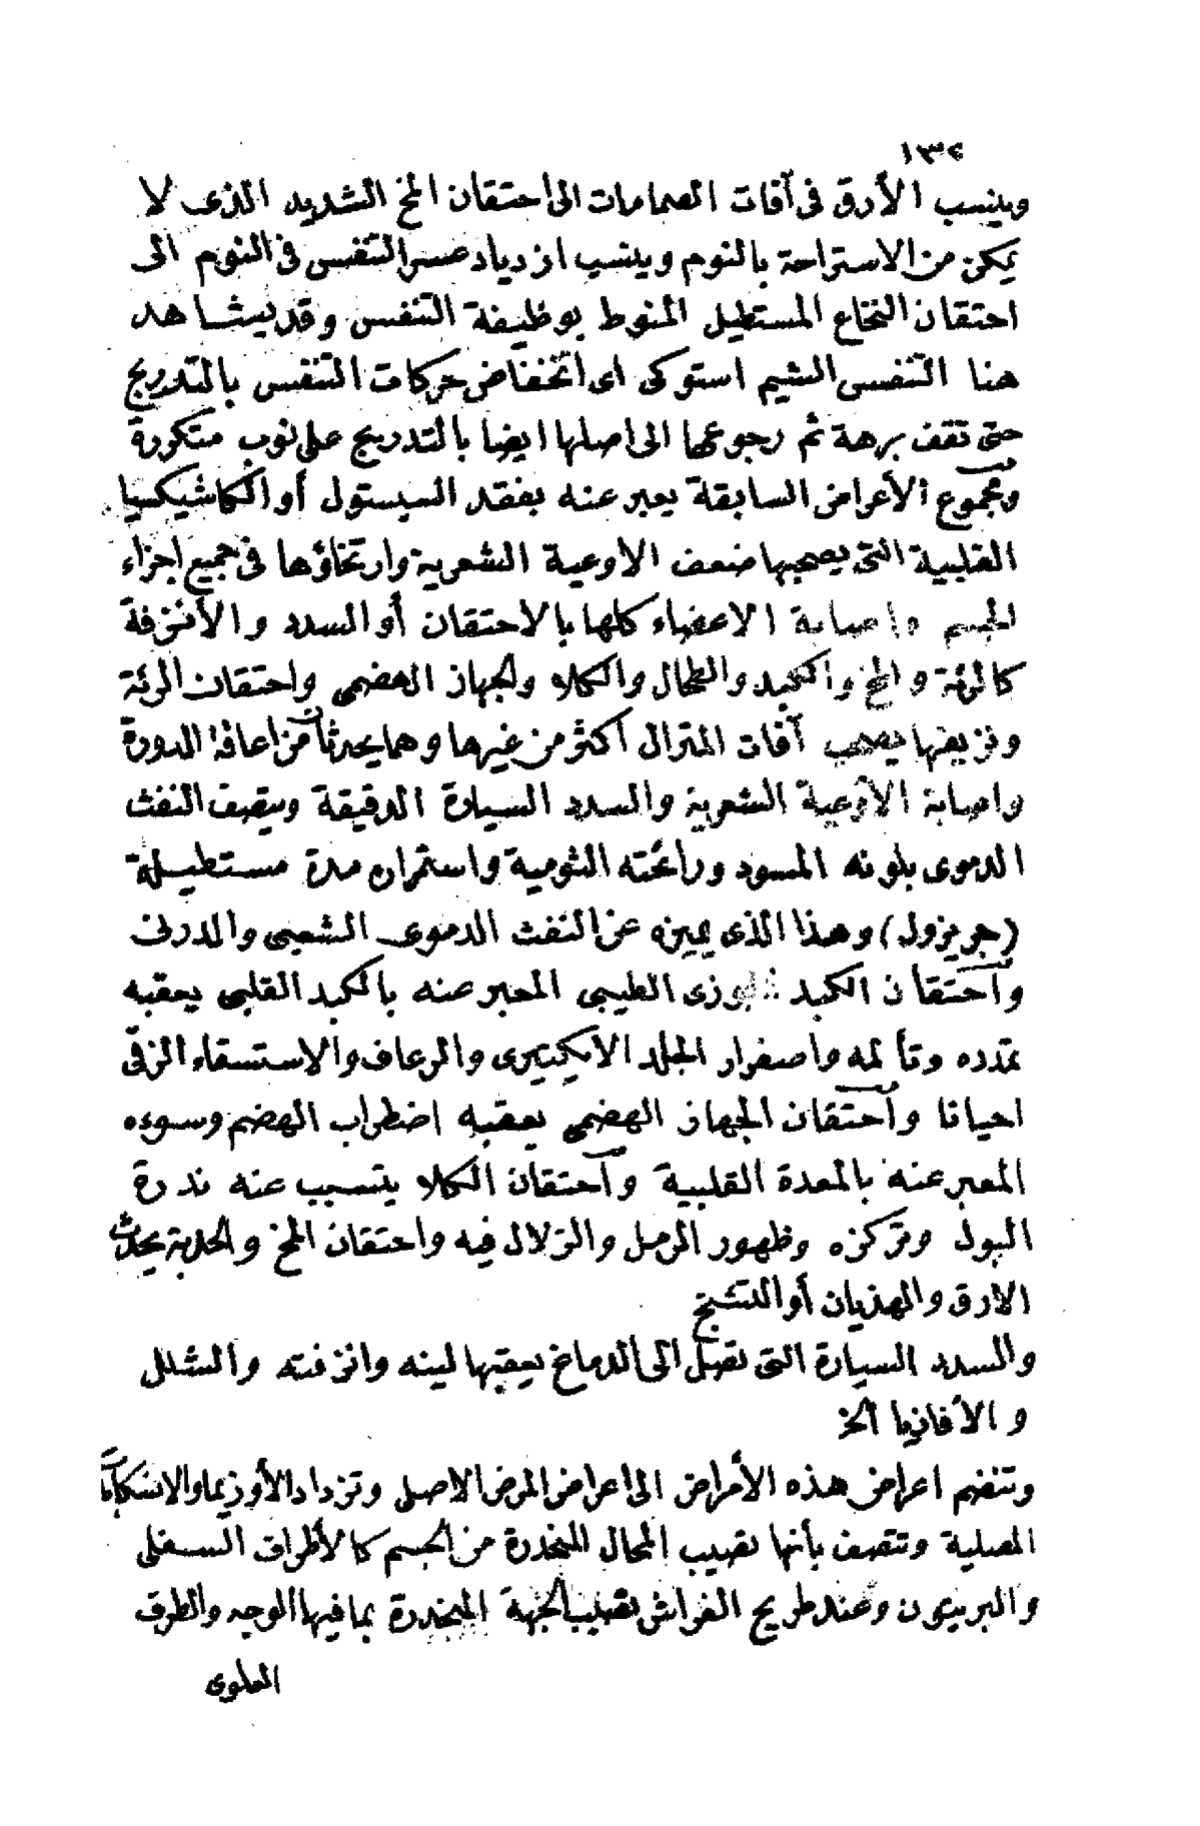 ١٣٢
وينسب الأرق فى آفات الصمامات الى احتقان المخ الشديد الذى لا
يمكن من الاستراحة بالنوم وينسب ازدياد عسر التنفس فى النوم الى
احتقان النخاع المستطيل المنوط بوظيفة التنفس وقد يشاهد
هنا التنفس الشيم استوكى اى انخفاض حركات التنفس بالتدريج
حتى تقف برهة ثم رجوعها الى اصلها ايضا بالتدريج على نوب متكررة
ومجموع الأعراض السابقة يعبر عنه بفقد السيستول أو الكاشيكسيا
القلبية التى يصحبها ضعف الاوعية الشعرية وارتخاؤها فى جميع اجزاء
الجسم واصابة الاعضاء كلها بالاحتقان أو السدد والأنزفة
كالرئة والمخ والكبد والطحال والكلا والجهاز الهضمى واحتقان الرئة
ونزيفها يصحب آفات المترال اكثر من غيرها وهما يحدثان من اعاقة الدورة
واصابة الأوعية الشعرية والسدد السيارة الدقيقة ويتصف النفث
الدموى بلونه المسود ورائحته الثومية واستمراره مدة مستطيلة
(جريزول) وهذا الذى يميزه عن النفث الدموى الشعبى والدرنى
واحتقان الكبد الجوزى الطيبى المعبر عنه بالكبد القلبى يعقبه
تمدده وتألمه واصفرار الجلد الايكتيرى والرعاف والاستسقاء الزقى
احيانا واحتقان الجهاز الهضمى يعقبه اضطراب الهضم وسوءه
المعبر عنه بالمعدة القلبية واحتقان الكلا يتسبب عنه ندرة
البول وتركزه وظهور الرمل والزلال فيه واحتقان المخ والحدبة يحدث
الارق والهذيان أو التشنج
والسدد السيارة التى تصل الى الدماغ يعقبها لينه وانزفته والشلل
والأفازيا الخ
وتنضم اعراض هذه الأمراض الى اعراض المرض الاصلى وتزداد الأوزيما والانسكابات
المصلية وتتصف بأنها تصيب المحال المنحدرة من الجسم كالأطراف السفلى
والبريتون وعند طريح الفراش تصيب الجهة المنحدرة بما فيها الوجه والطرف
العلوى